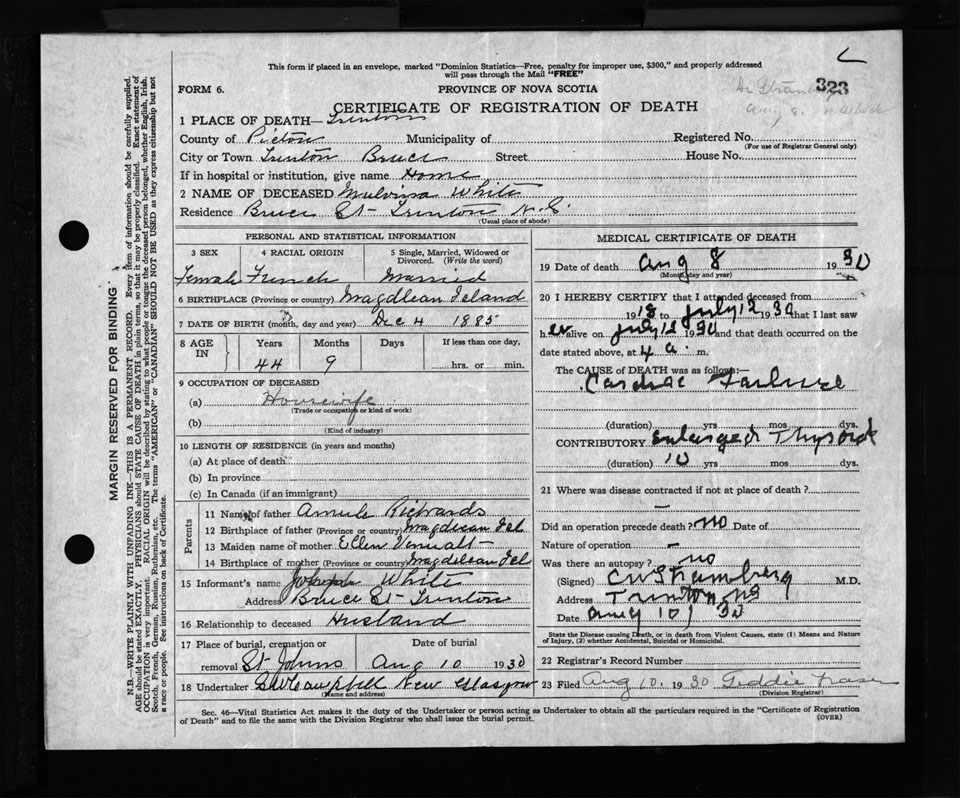 This form if placed in an envelope, marked "Dominion Statistics—Free, penalty for improper use, $300," and properly addressed
will pass through the Mail "FREE"
323
FORM 6.
PROVINCE OF NOVA SCOTIA
CERTIFICATE OF REGISTRATION OF DEATH
1 PLACE OF DEATH— Trenton
County of Pictou Municipality of Registered No.
(For use of Registrar General only)
City or Town Trenton Bruce Street House No.
If in hospital or institution, give name Home
2 NAME OF DECEASED Mulvina White
Residence Bruce St Trenton N.S
(Usual place of abode)
PERSONAL AND STATISTICAL INFORMATION
3 SEX 4 RACIAL ORIGIN 5 Single, Married, Widowed or
Divorced. (Write the word)
Female French Married
6 BIRTHPLACE (Province or country) Magdlean Island
7 DATE OF BIRTH (month, day and year) Dec 4 1885
8 AGE IN Years Months Days If less than one day,
44 9 hrs. or min.
9 OCCUPATION OF DECEASED
(a) Housewife
(Trade or occupation or kind of work)
(b)
(Kind of industry)
10 LENGTH OF RESIDENCE (in years and months)
(a) At place of death
(b) In province
(c) In Canada (if an immigrant)
Parents
11 Name of father Richards
12 Birthplace of father (Province or country) Magdlean Isl
13 Maiden name of mother Ellen
14 Birthplace of mother (Province or country) Magdelean Isl
15 Informant's name Joseph White
Address Bruce St Trenton
16 Relationship to deceased Husband
17 Place of burial, cremation or Date of burial
removal St Johns Aug 10 1930
18 Undertaker Campbell New Glasgow
(Name and address)
MEDICAL CERTIFICATE OF DEATH
19 Date of death Aug 8 1930
(Month, day and year)
20 I HEREBY CERTIFY that I attended deceased from
1918 to July 12 1930 that I last saw
her alive on July 12 1930 and that death occurred on
date stated above, at 4 a. m.
The CAUSE of DEATH was as follows:—
Cardiac Failure
(duration) yrs mos dys.
CONTRIBUTORY Enlarged Thyroid
(duration) 10 yrs mos dys.
21 Where was disease contracted if not at place of death?
Did an operation precede death? no Date of
Nature of operation —
Was there an autopsy? no
(Signed) M.D.
Address Trenton NS
Date Aug 10/30
State the Disease causing Death, or in death from Violent Causes, state (1) Means and Nature
of Injury, (2) whether Accidental, Suicidal or Homicidal.
22 Registrar's Record Number
23 Filed Aug 10. 1930 Fraser
(Division Registrar)
Sec. 46—Vital Statistics Act makes it the duty of the Undertaker or person acting as Undertaker to obtain all the particulars required in the "Certificate of Registration
of Death" and to file the same with the Division Registrar who shall issue the burial permit.
(OVER)
MARGIN RESERVED FOR BINDING
N.B.—WRITE PLAINLY WITH UNFADING INK—THIS IS A PERMANENT RECORD. Every item of information should be carefully supplied.
AGE should be stated EXACTLY. PHYSICIANS should STATE CAUSE OF DEATH in plain terms, so that it may be properly classified. Exact statement of
OCCUPATION is very important. RACIAL ORIGIN will be described by stating to what people or tongue the deceased person belonged, whether English, Irish,
Scotch, French, German, Russian, Ruthenian, etc. The terms "AMERICAN" or "CANADIAN" SHOULD NOT BE USED as they express citizenship but not
a race or people. See instructions on back of Certificate.